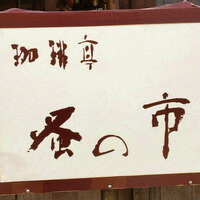 珈琲亭
蚤の市